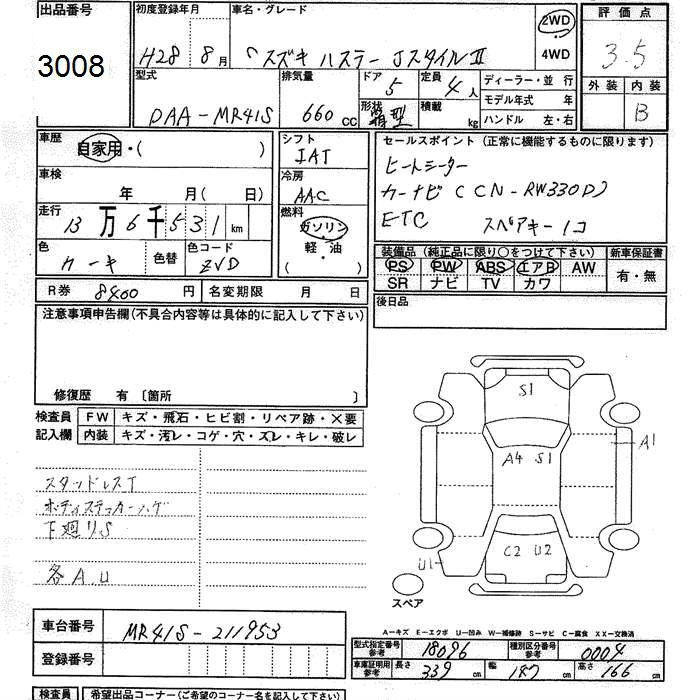 出品番号
3008
初度登録年月
H28 8月
車名・グレード
スズキ ハスラー JスタイルⅡ
2WD
4WD
評価点
3.5
外装 内装
B
型式
DAA-MR41S
排気量
660 cc
ドア
5
定員
4人
形状
箱型
積載
kg
ディーラー・並行
モデル年式 年
ハンドル 左・右
車歴
自家用・( )
車検
年 月( 日)
走行
13万6千531 km
色
色替
色コード
ZVD
シフト
IAT
冷房
AAC
燃料
ガソリン
軽・油
( )
セールスポイント(正常に機能するものに限ります)
ヒートシーター
カーナビ (CN-RW330D)
ETC スペアキー1コ
装備品(純正品に限り〇をつけて下さい)
新車保証書
PS PW ABS エアB AW
SR ナビ TV カワ
有・無
R券 8400 円
名変期限 月 日
後日品
注意事項申告欄(不具合内容等は具体的に記入して下さい)
修復歴 有 〔箇所 〕
検査員
記入欄
FW キズ・飛石・ヒビ割・リペア跡・×要
内装 キズ・汚レ・コゲ・穴・ズレ・キレ・破レ
スタッドレスT
ボディステッカーハゲ
下廻りS
各A.U
S1
A1
A4 S1
C2 U2
U1
スペア
A-キズ E-エクボ U-凹み W-補修跡 S-サビ C-腐食 XX-交換済
車台番号
MR41S-211953
登録番号
型式指定番号
参考
18096
種別区分番号
参考
0004
車庫証明用
参考
長さ 339 cm
幅 147 cm
高さ 166 cm
検査員
希望出品コーナー(ご希望のコーナー名を記入して下さい)